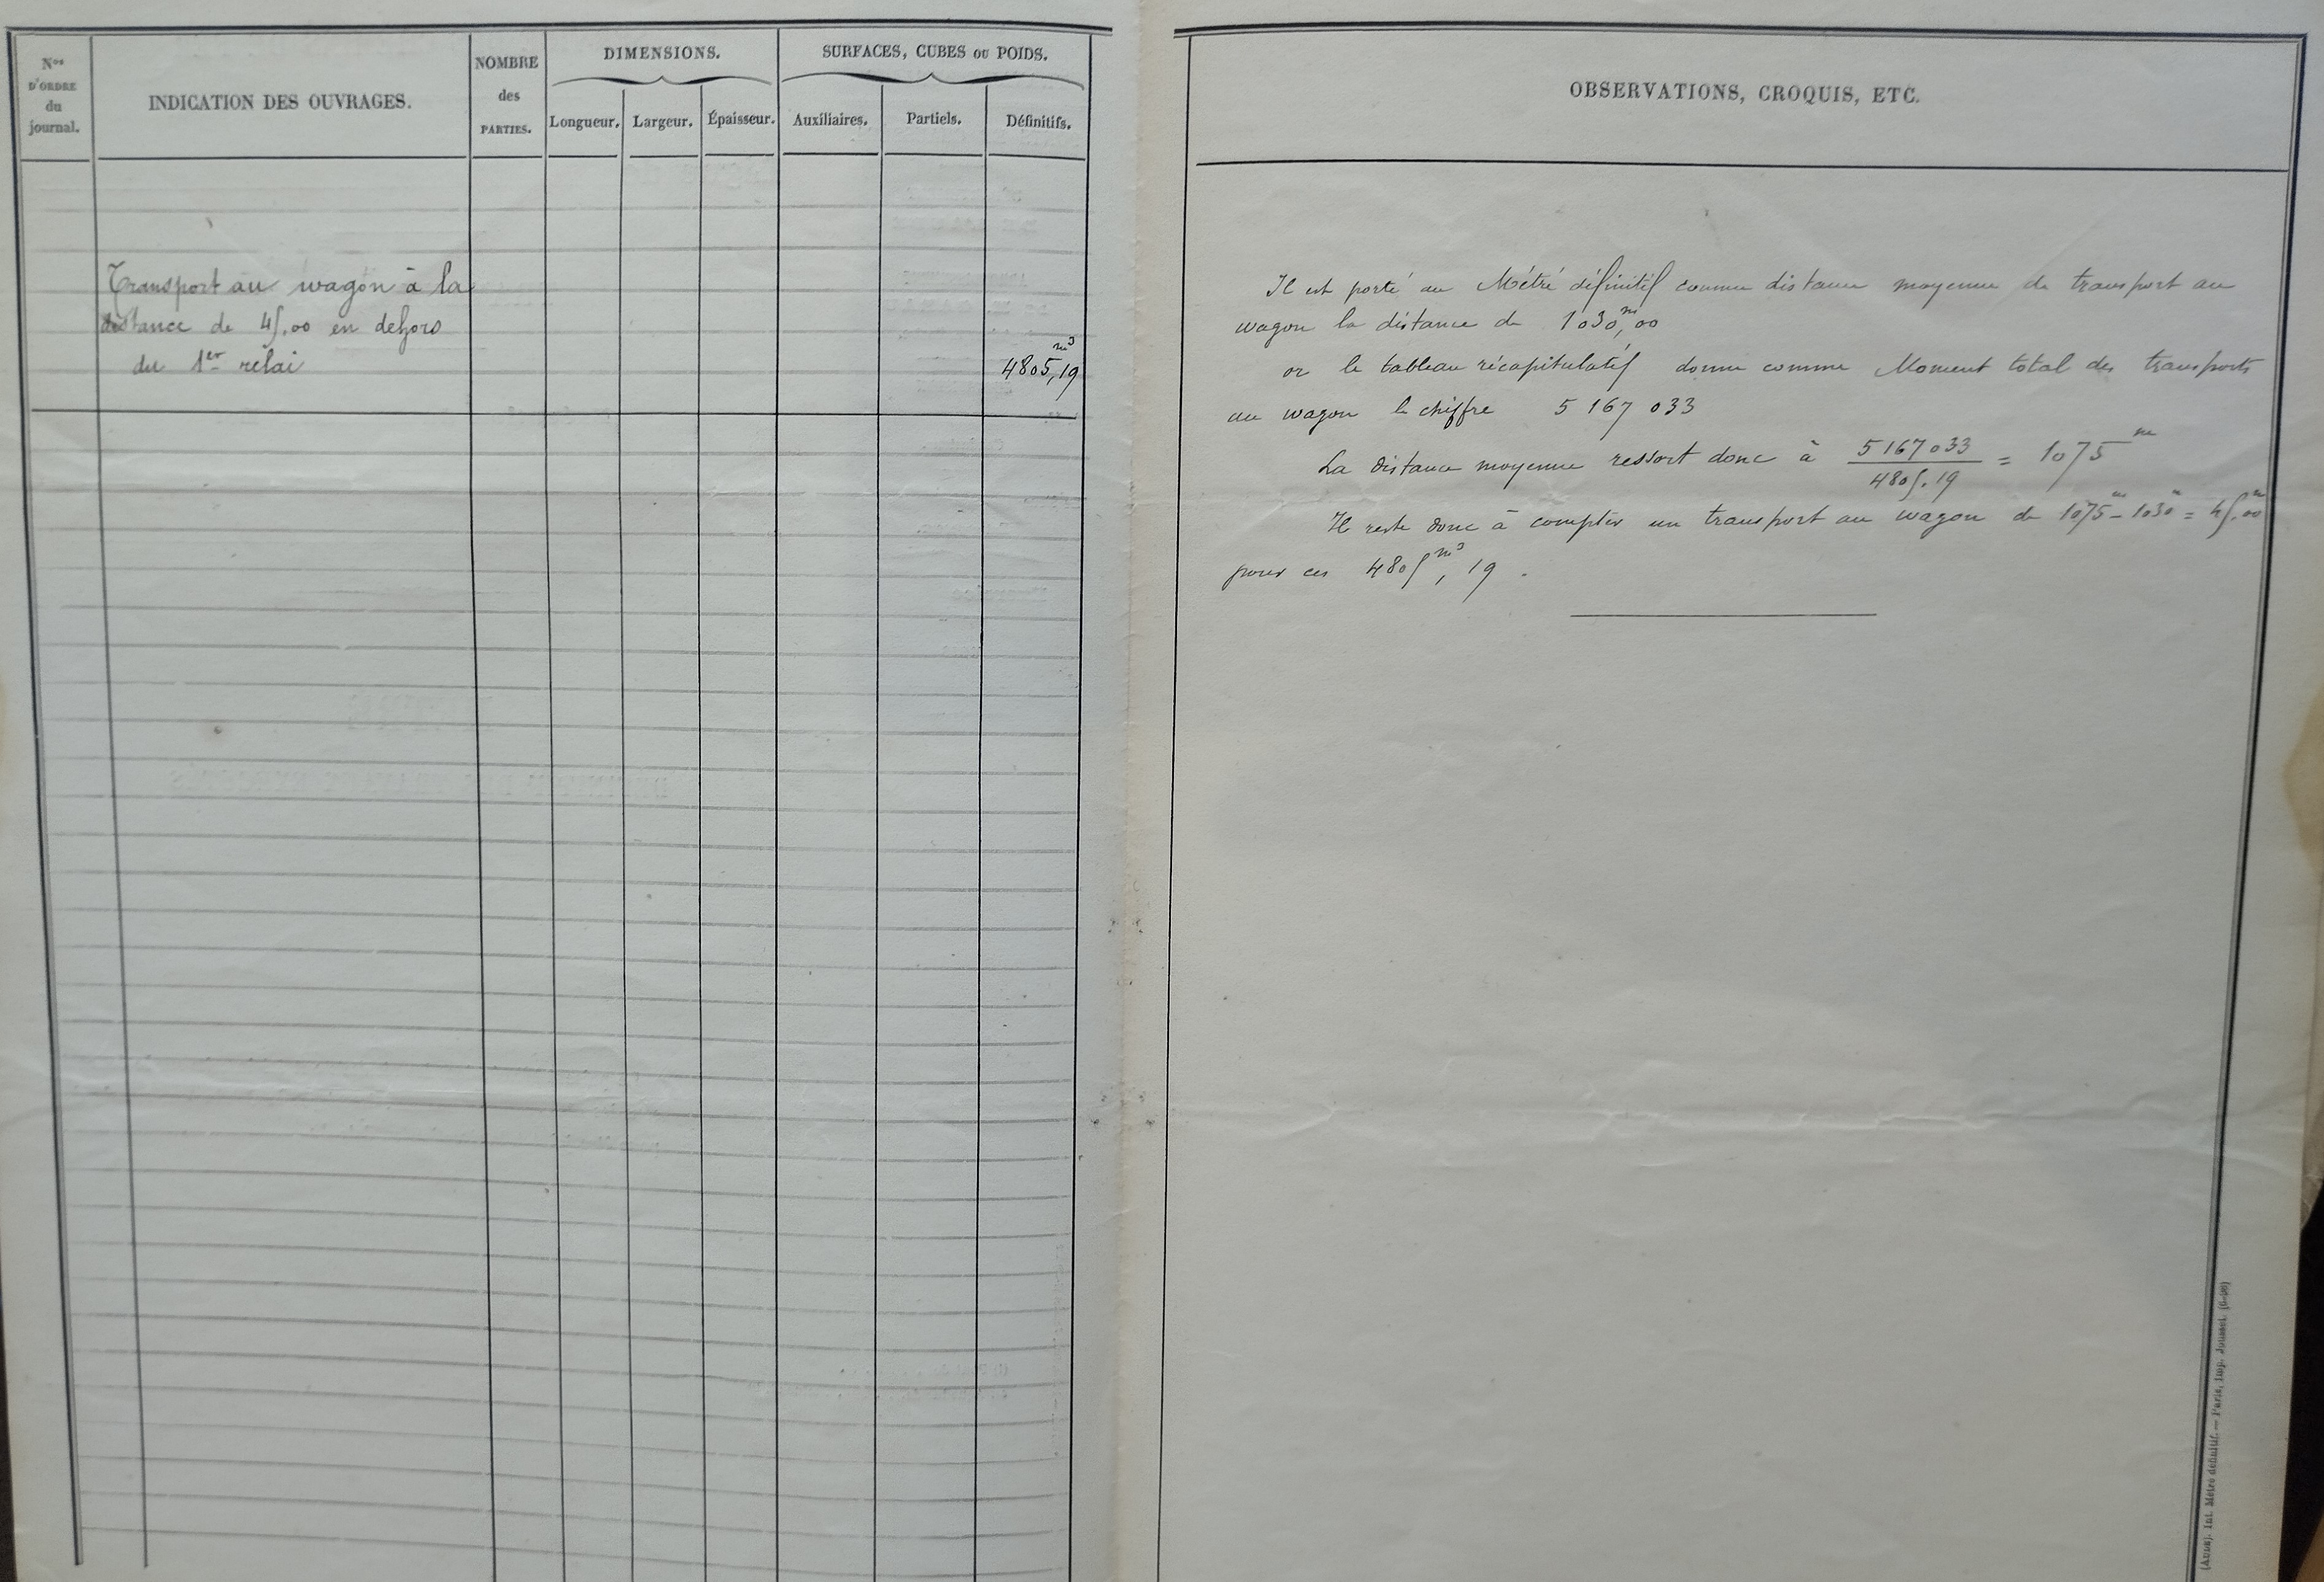 Nos
D'ORDRE
du
journal.
INDICATION DES OUVRAGES.
NOMBRE
des
PARTIES.
DIMENSIONS.
Longueur.
Largeur.
Épaisseur.
SURFACES, CUBES ou POIDS.
Auxiliaires.
Partiels.
Définitifs.
Transport au wagon à la
distance de 45.00 en dehors
du 1er relai
4805,19 m3
OBSERVATIONS, CROQUIS, ETC.
Il est porté au Métré définitif comme distance moyenne de transport au
wagon la distance de 1030m,00
or le tableau récapitulatif donne comme Moment total des transports
au wagon le chiffre 5 167 033
La distance moyenne ressort donc à 5167033 / 4805.19 = 1075m
Il reste donc à compter un transport au wagon de 1075m - 1030m = 45m.00
pour ces 4805m3,19.
Métré définitif. — Paris, Imp. Jousset.